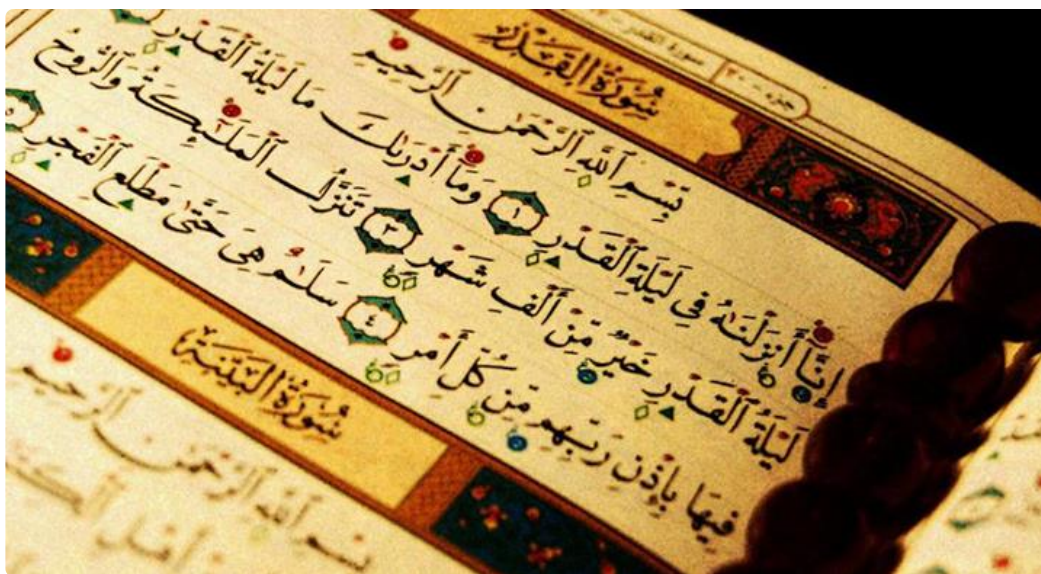 جزء ٣٠ سورة القدر
سُورَةُ القَدْرِ
بِسْمِ ٱللَّهِ ٱلرَّحْمَٰنِ ٱلرَّحِيمِ
إِنَّآ أَنزَلْنَٰهُ فِى لَيْلَةِ ٱلْقَدْرِ ١ وَمَآ أَدْرَىٰكَ مَا لَيْلَةُ ٱلْقَدْرِ ٢
لَيْلَةُ ٱلْقَدْرِ خَيْرٌ مِّنْ أَلْفِ شَهْرٍ ٣ تَنَزَّلُ ٱلْمَلَٰٓئِكَةُ وَٱلرُّوحُ
فِيهَا بِإِذْنِ رَبِّهِم مِّن كُلِّ أَمْرٍ ٤ سَلَٰمٌ هِىَ حَتَّىٰ مَطْلَعِ ٱلْفَجْرِ ٥
سُورَةُ البَيِّنَةِ
بِسْمِ ٱللَّهِ ٱلرَّحْمَٰنِ ٱلرَّحِيمِ